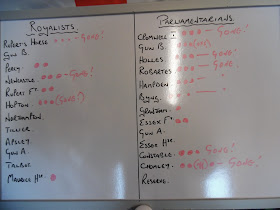 ROYALISTS.
RUPERT'S HORSE GONE!
GUN B.
PERCY
NEWCASTLE GONE!
RUPERT Ft
HOPTON (GONE!)
NORTHAMPTON.
TILLIER.
APSLEY.
GUN A.
TALBOT.
MAURICE Hse
PARLIAMENTARIANS.
CROMWELL GONE!
GUN B.
HOLLES. GONE!
ROBARTES GONE!
HAMPDEN
BYNG.
GRANTHAM
ESSEX Ft
GUN A.
ESSEX Hse
CONSTABLE. GONE!
CHOMLEY. GONE!
RESERVE.